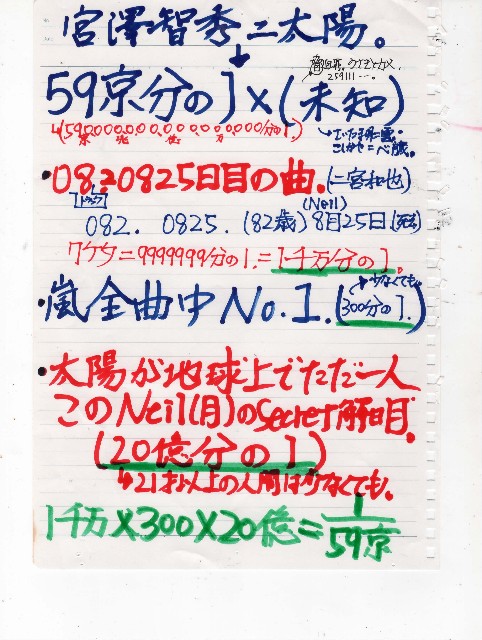 宮澤智秀ニ太陽。
259111….
59京分の1×(未知)
(590,000,0.0.0.0.0.0.000分の1.)
京 兆 億 万
・0820825日目の曲。(二宮和也)
(Neil)
082. 0825. (82歳) 8月25日.(死去)
ワケタ=9999999/分の1.=1千万分の1。
・嵐全曲中No.1.(300分の1.)
少なくても。
・太陽が地球上でただ一人
このNeil(月)のSecret解明。
(20億分の1)
21才以上の人間は少なくても。
1千万×300×20億=1/59京